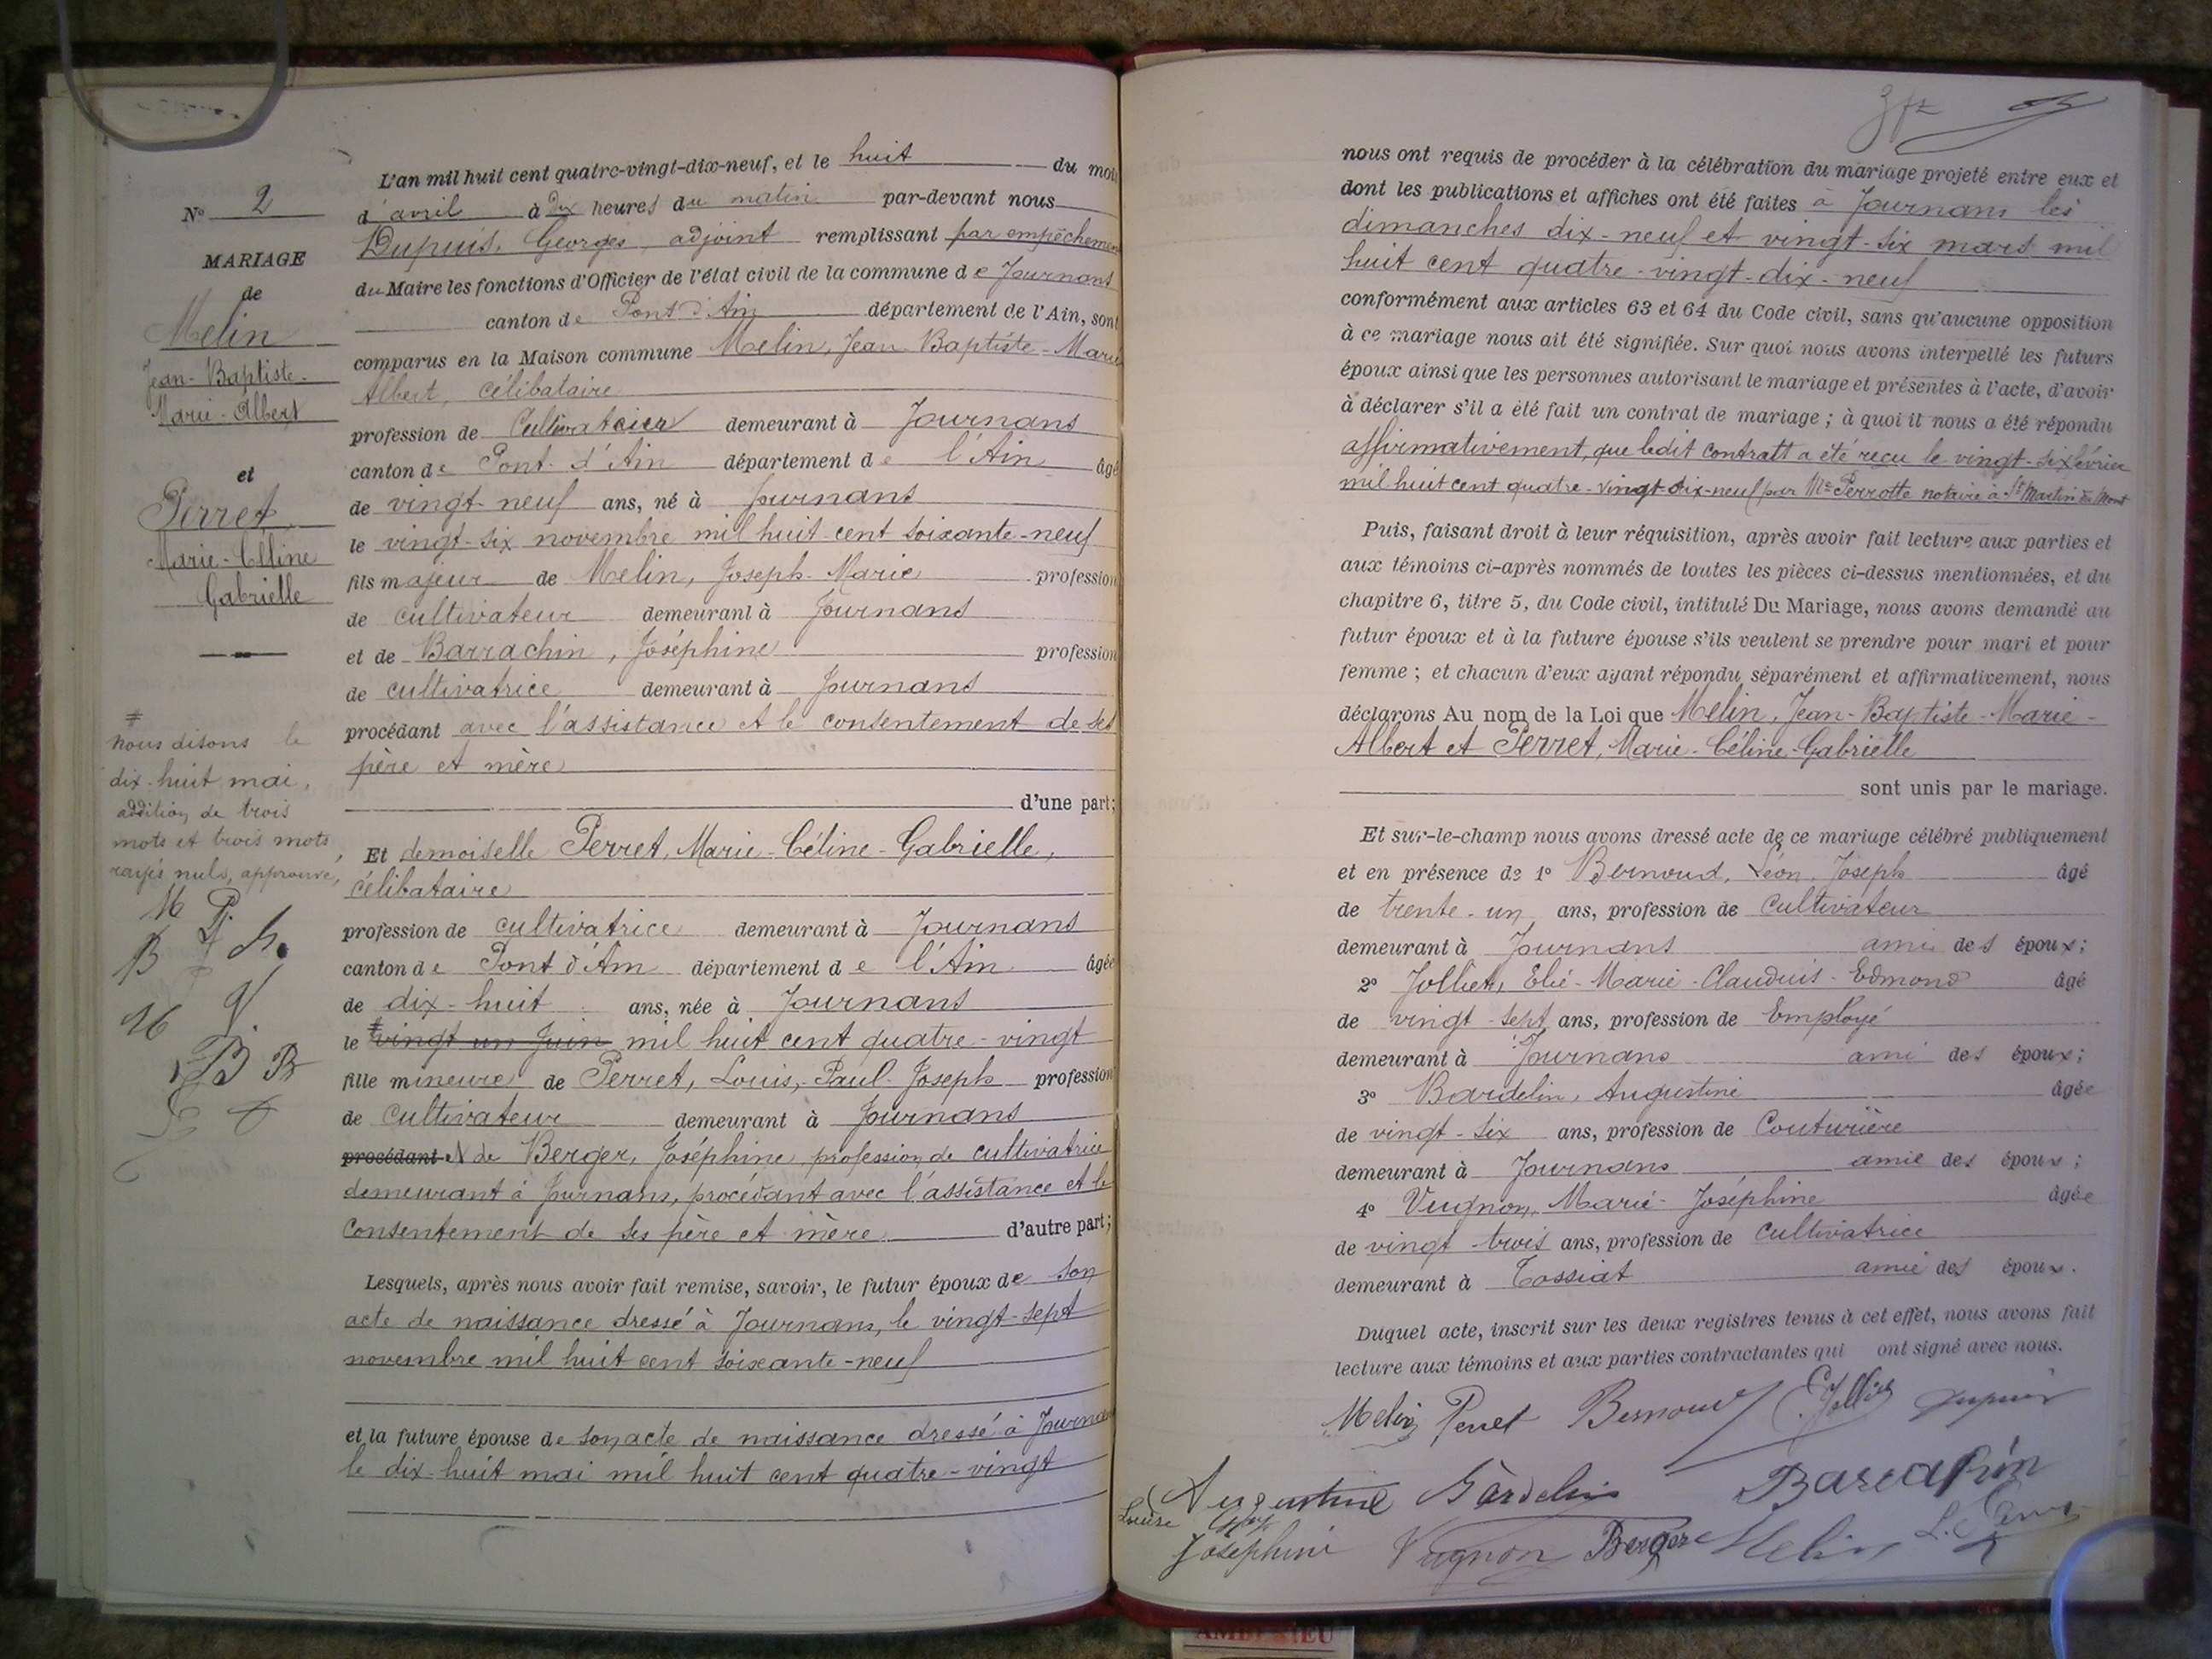 N° 2
MARIAGE
de
Melin
Jean-Baptiste-
Marie-Albert
et
Perret
Marie-Céline
Gabrielle
#
nous disons le
dix-huit mai,
addition de trois
mots et trois mots
rayés nuls, approuvé,
L'an mil huit cent quatre-vingt-dix-neuf, et le huit du mois
d'avril à dix heures du matin par-devant nous
Dupuis, Georges, adjoint remplissant par empêchement
du Maire les fonctions d'Officier de l'état civil de la commune de Journans
canton de Pont d'Ain département de l'Ain, sont
comparus en la Maison commune Melin, Jean-Baptiste-Marie
Albert, célibataire
profession de Cultivateur demeurant à Journans
canton de Pont-d'Ain département de l'Ain âgé
de vingt-neuf ans, né à Journans
le vingt-six novembre mil huit-cent soixante-neuf
fils majeur de Melin, Joseph-Marie profession
de cultivateur demeurant à Journans
et de Barrachin, Joséphine profession
de cultivatrice demeurant à Journans
procédant avec l'assistance et le consentement de ses
père et mère
d'une part;
Et demoiselle Perret, Marie-Céline-Gabrielle,
célibataire
profession de cultivatrice demeurant à Journans
canton de Pont d'Ain département de l'Ain âgée
de dix-huit ans, née à Journans
le # vingt un Juin mil huit cent quatre-vingt
fille mineure de Perret, Louis, Paul-Joseph profession
de Cultivateur demeurant à Journans
procédant et de Berger, Joséphine, profession de cultivatrice
demeurant à Journans, procédant avec l'assistance et le
consentement de ses père et mère d'autre part;
Lesquels, après nous avoir fait remise, savoir, le futur époux de son
acte de naissance dressé à Journans, le vingt-sept
novembre mil huit cent soixante-neuf
et la future épouse de son acte de naissance dressé à Journans
le dix-huit mai mil huit cent quatre-vingt
nous ont requis de procéder à la célébration du mariage projeté entre eux et
dont les publications et affiches ont été faites à Journans les
dimanches dix-neuf et vingt-six mars mil
huit cent quatre-vingt-dix-neuf
conformément aux articles 63 et 64 du Code civil, sans qu'aucune opposition
à ce mariage nous ait été signifiée. Sur quoi nous avons interpellé les futurs
époux ainsi que les personnes autorisant le mariage et présentes à l'acte, d'avoir
à déclarer s'il a été fait un contrat de mariage; à quoi il nous a été répondu
affirmativement, que ledit contratt a été reçu le vingt-six février
mil huit cent quatre-vingt-dix-neuf par Me Perrotte notaire à St Martin du Mont
Puis, faisant droit à leur réquisition, après avoir fait lecture aux parties et
aux témoins ci-après nommés de toutes les pièces ci-dessus mentionnées, et du
chapitre 6, titre 5, du Code civil, intitulé Du Mariage, nous avons demandé au
futur époux et à la future épouse s'ils veulent se prendre pour mari et pour
femme; et chacun d'eux ayant répondu séparément et affirmativement, nous
déclarons Au nom de la Loi que Melin, Jean-Baptiste-Marie-
Albert et Perret, Marie-Céline-Gabrielle
sont unis par le mariage.
Et sur-le-champ nous avons dressé acte de ce mariage célébré publiquement
et en présence de 1° Bernoud, Léon, Joseph âgé
de trente-un ans, profession de Cultivateur
demeurant à Journans ami des époux;
2° Jolliet, Elié-Marie-Claudius-Edmond âgé
de vingt-sept ans, profession de Employé
demeurant à Journans ami des époux;
3° Bardelin, Augustine âgée
de vingt-six ans, profession de Couturière
demeurant à Journans amie des époux;
4° Vugnon, Marie-Joséphine âgée
de vingt-trois ans, profession de cultivatrice
demeurant à Tossiat amie des époux.
Duquel acte, inscrit sur les deux registres tenus à cet effet, nous avons fait
lecture aux témoins et aux parties contractantes qui ont signé avec nous.
Melin Perret Bernoud E. Jolliet Dupuis
Augustine Bardelin Barrachin
Joséphine Vugnon Berger Melin